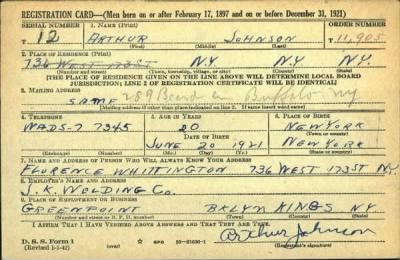 REGISTRATION CARD—(Men born on or after February 17, 1897 and on or before December 31, 1921)
SERIAL NUMBER 1. NAME (Print) ORDER NUMBER
12 ARTHUR JOHNSON T 11,905
(First) (Middle) (Last)
2. PLACE OF RESIDENCE (Print)
736 WEST 173ST N.Y. N.Y. N.Y.
(Number and street) (Town, township, village, or city) (County) (State)
[THE PLACE OF RESIDENCE GIVEN ON THE LINE ABOVE WILL DETERMINE LOCAL BOARD
JURISDICTION; LINE 2 OF REGISTRATION CERTIFICATE WILL BE IDENTICAL]
3. MAILING ADDRESS
SAME Buffalo NY
[Mailing address if other than place indicated on line 2. If same insert word same]
4. TELEPHONE 5. AGE IN YEARS 6. PLACE OF BIRTH
WADS-7 7345 20 NEW YORK
DATE OF BIRTH (Town or county)
JUNE 20 1921 NEW YORK
(Exchange) (Number) (Mo.) (Day) (Yr.) (State or country)
7. NAME AND ADDRESS OF PERSON WHO WILL ALWAYS KNOW YOUR ADDRESS
FLORENCE WHITTINGTON 736 WEST 173ST N.Y.
8. EMPLOYER'S NAME AND ADDRESS
J.K. WELDING CO.
9. PLACE OF EMPLOYMENT OR BUSINESS
GREENPOINT BKLYN KINGS NY
(Number and street or R. F. D. number) (Town) (County) (State)
I AFFIRM THAT I HAVE VERIFIED ABOVE ANSWERS AND THAT THEY ARE TRUE.
D. S. S. Form 1
(Revised 1-5-42) (over) Arthur Johnson
(Registrant's signature)